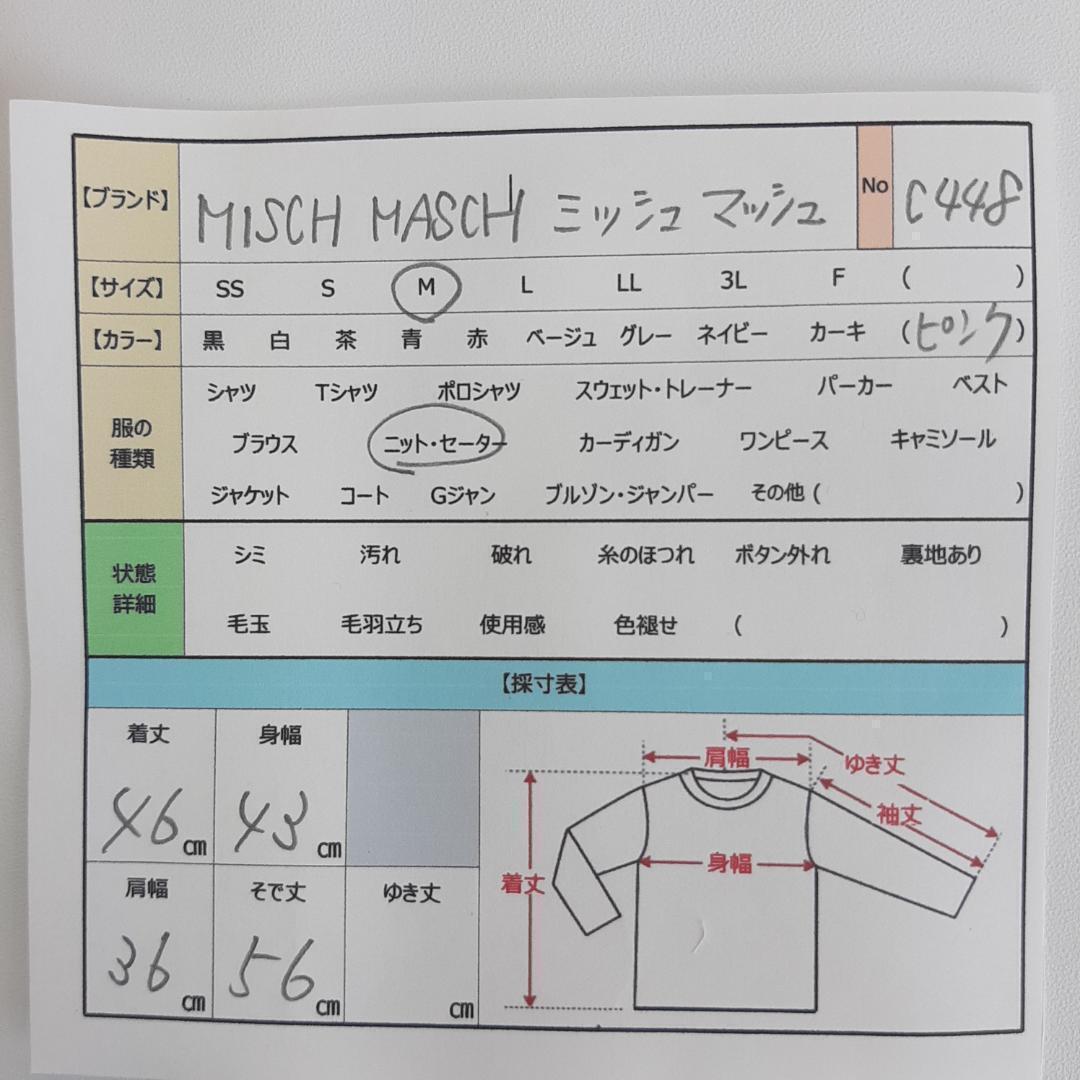 【ブランド】 MISCH MASCH ミッシュ マッシュ No C448
【サイズ】 SS S M L LL 3L F ( )
【カラー】 黒 白 茶 青 赤 ベージュ グレー ネイビー カーキ (ピンク)
服の種類
シャツ Tシャツ ポロシャツ スウェット・トレーナー パーカー ベスト
ブラウス ニット・セーター カーディガン ワンピース キャミソール
ジャケット コート Gジャン ブルゾン・ジャンパー その他 ( )
状態詳細
シミ 汚れ 破れ 糸のほつれ ボタン外れ 裏地あり
毛玉 毛羽立ち 使用感 色褪せ ( )
【採寸表】
着丈 身幅
46cm 43cm
肩幅 そで丈 ゆき丈
36cm 56cm cm
肩幅 ゆき丈
袖丈
身幅
着丈